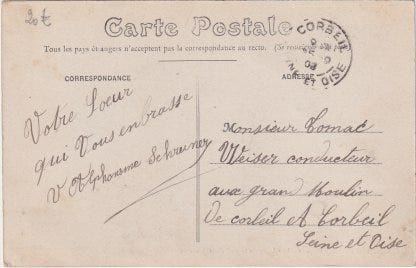 20€
Carte Postale
Tous les pays étrangers n'acceptent pas la correspondance au recto. (Se
CORBEIL
ET OISE
CORRESPONDANCE
ADRESSE
Votre Sœur
qui Vous enbrasse
V Alphonsine Schreiner
Monsieur Tomac
Weiser conducteur
aux grand Moulin
De corleil A Corbeil
Seine et Oise